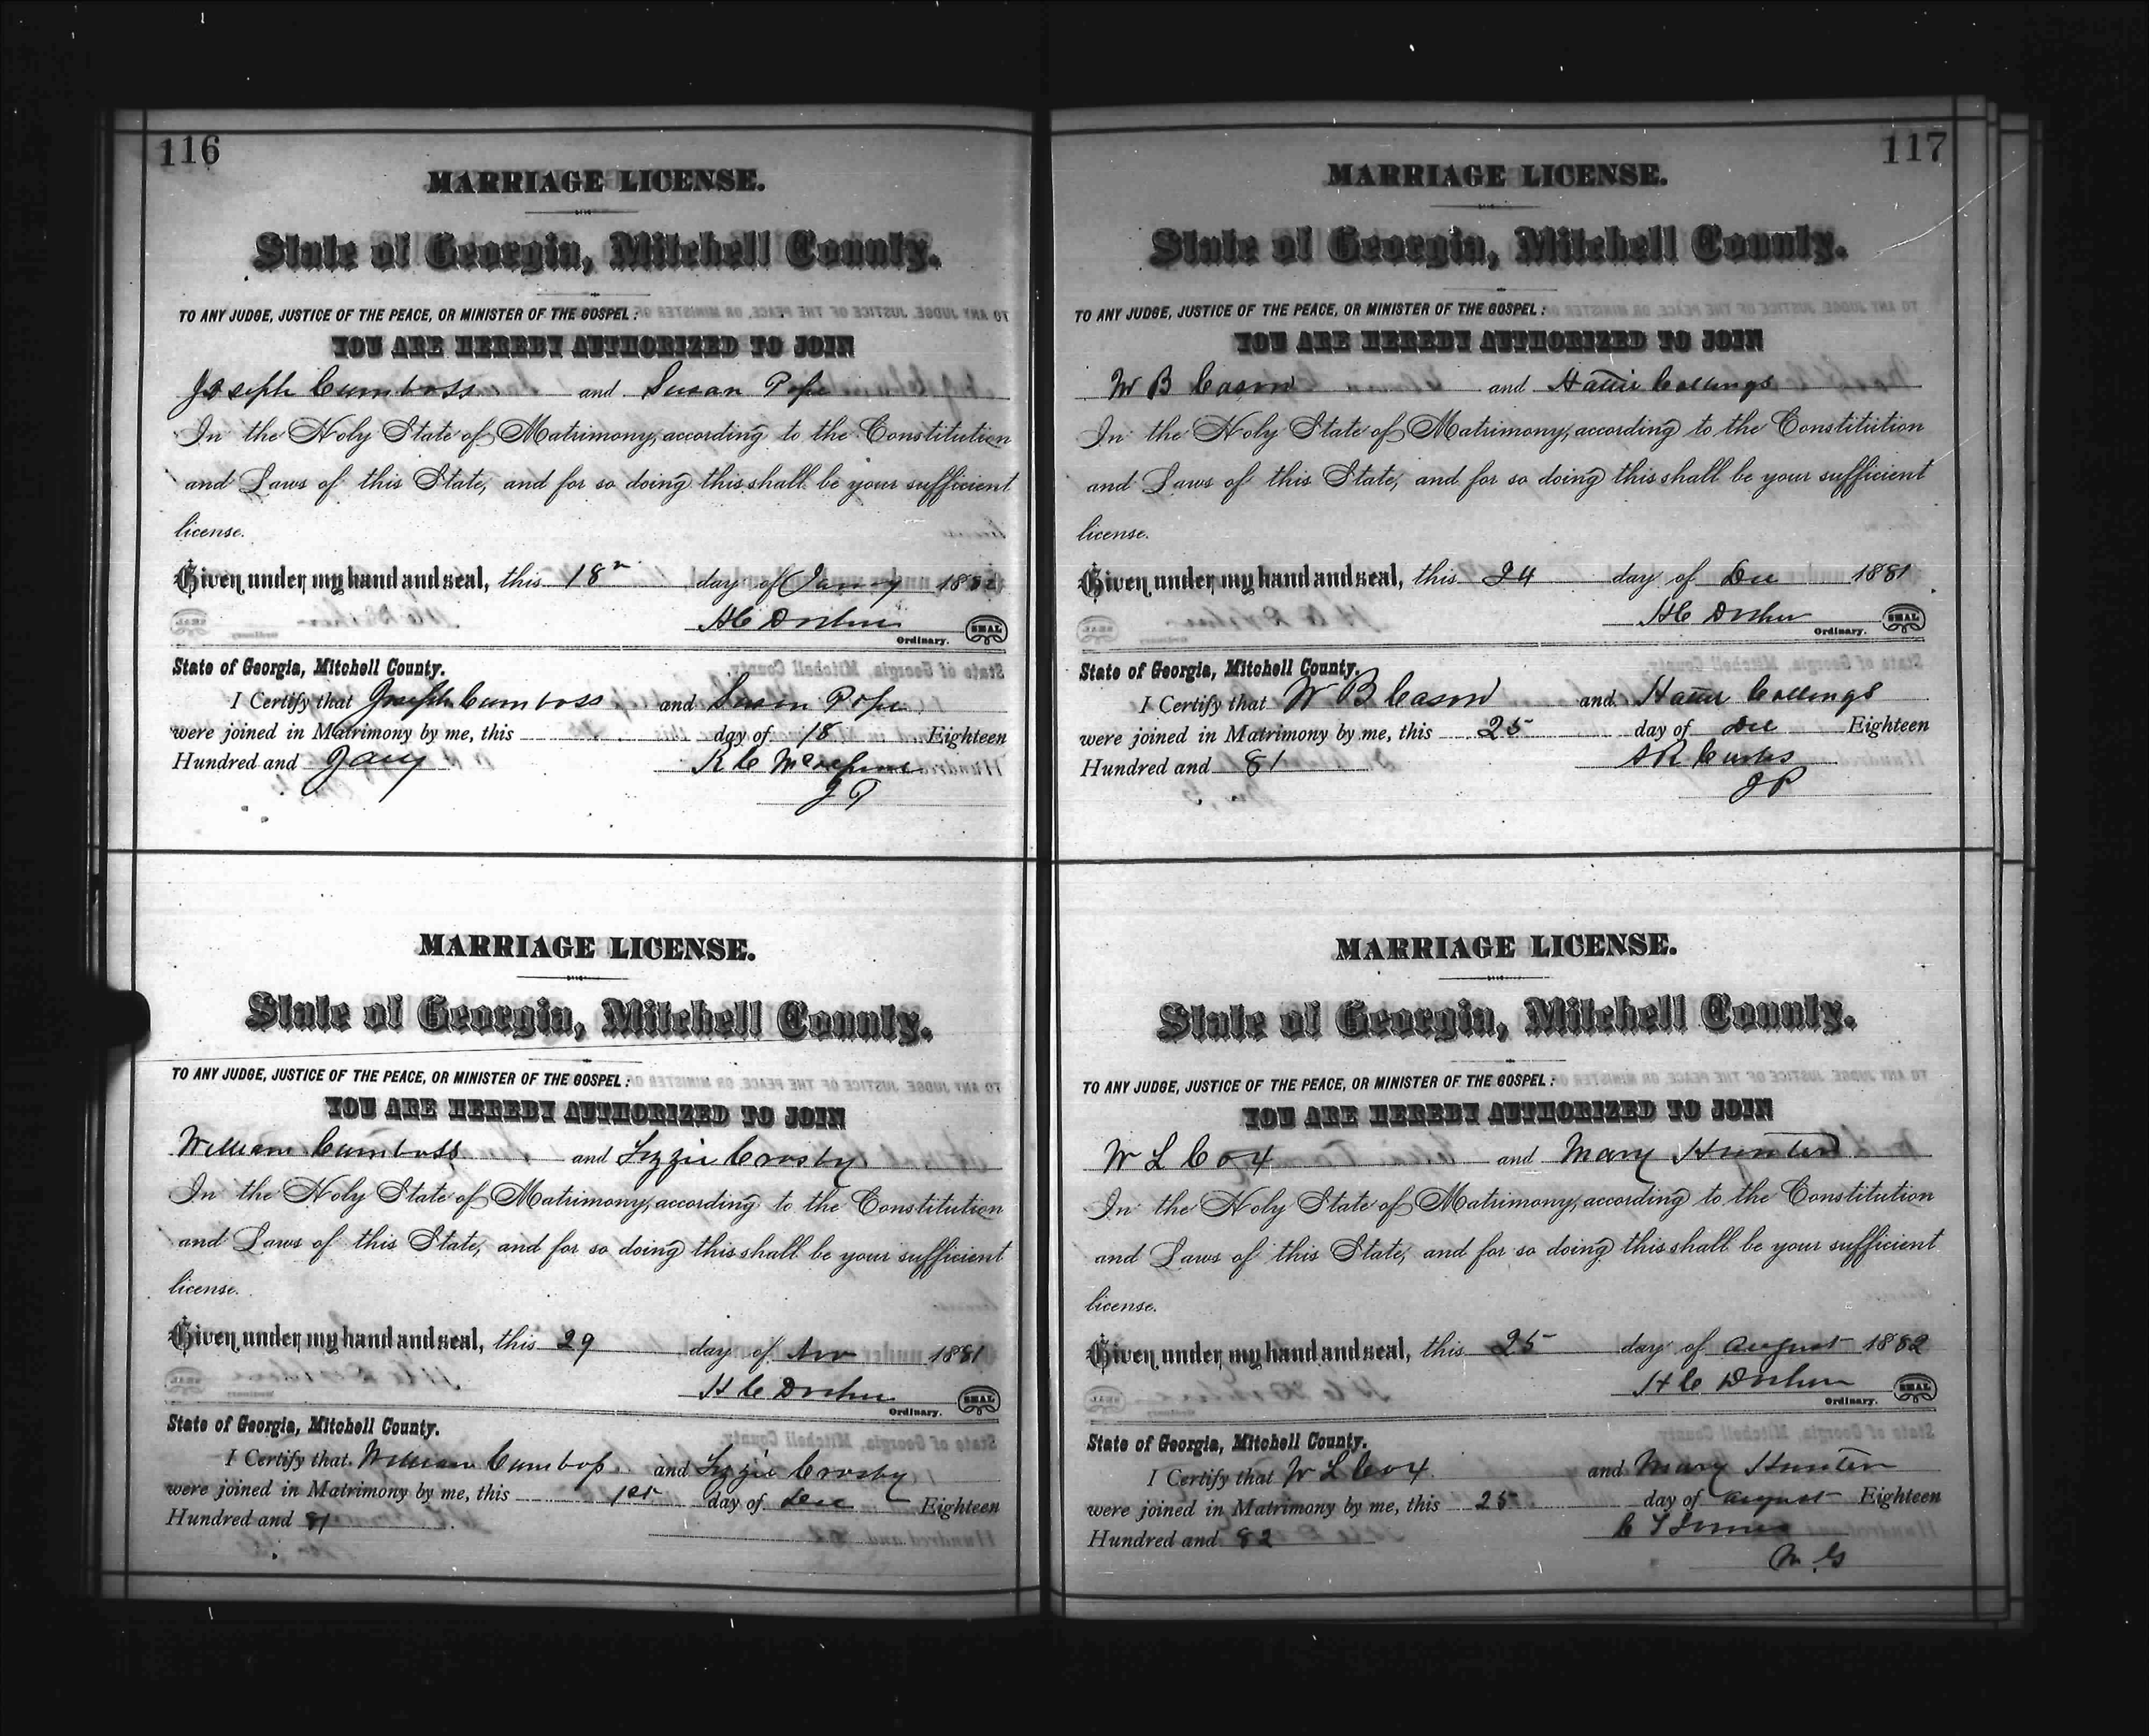 116
MARRIAGE LICENSE.
State of Georgia, Mitchell County.
TO ANY JUDGE, JUSTICE OF THE PEACE, OR MINISTER OF THE GOSPEL:
YOU ARE HEREBY AUTHORIZED TO JOIN
Joseph Cumboss and Susan Pope
In the Holy State of Matrimony, according to the Constitution
and Laws of this State, and for so doing this shall be your sufficient
license.
Given under my hand and seal, this 18 day of Jany 1882
H C
Ordinary. SEAL
State of Georgia, Mitchell County.
I Certify that Joseph Cumboss and Susan Pope
were joined in Matrimony by me, this day of 18 Eighteen
Hundred and Jany R C
J P
MARRIAGE LICENSE.
State of Georgia, Mitchell County.
TO ANY JUDGE, JUSTICE OF THE PEACE, OR MINISTER OF THE GOSPEL:
YOU ARE HEREBY AUTHORIZED TO JOIN
William Cumboss and Lizzie Crosby
In the Holy State of Matrimony, according to the Constitution
and Laws of this State, and for so doing this shall be your sufficient
license.
Given under my hand and seal, this 29 day of Nov 1881
H C
Ordinary. SEAL
State of Georgia, Mitchell County.
I Certify that William Cumboss and Lizzie Crosby
were joined in Matrimony by me, this 1st day of Dec Eighteen
Hundred and 81
117
MARRIAGE LICENSE.
State of Georgia, Mitchell County.
TO ANY JUDGE, JUSTICE OF THE PEACE, OR MINISTER OF THE GOSPEL:
YOU ARE HEREBY AUTHORIZED TO JOIN
W B Cason and Hattie Collings
In the Holy State of Matrimony, according to the Constitution
and Laws of this State, and for so doing this shall be your sufficient
license.
Given under my hand and seal, this 24 day of Dec 1881
H C
Ordinary. SEAL
State of Georgia, Mitchell County.
I Certify that W B Cason and Hattie Collings
were joined in Matrimony by me, this 25 day of Dec Eighteen
Hundred and 81 A R Curles
J P
MARRIAGE LICENSE.
State of Georgia, Mitchell County.
TO ANY JUDGE, JUSTICE OF THE PEACE, OR MINISTER OF THE GOSPEL:
YOU ARE HEREBY AUTHORIZED TO JOIN
W L Cox and Mary Hunter
In the Holy State of Matrimony, according to the Constitution
and Laws of this State, and for so doing this shall be your sufficient
license.
Given under my hand and seal, this 25 day of August 1882
H C
Ordinary. SEAL
State of Georgia, Mitchell County.
I Certify that W L Cox and Mary Hunter
were joined in Matrimony by me, this 25 day of August Eighteen
Hundred and 82
M. G